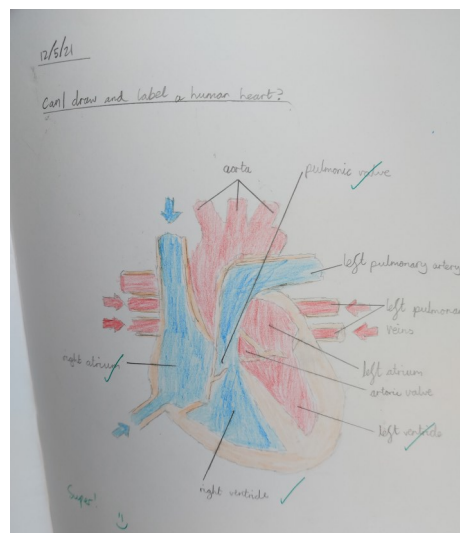 12/5/21
Can I draw and label a human heart?
aorta
pulmonic valve
left pulmonary artery
left pulmonary
veins
right atrium
left atrium
aortic valve
left ventricle
right ventricle
Super!